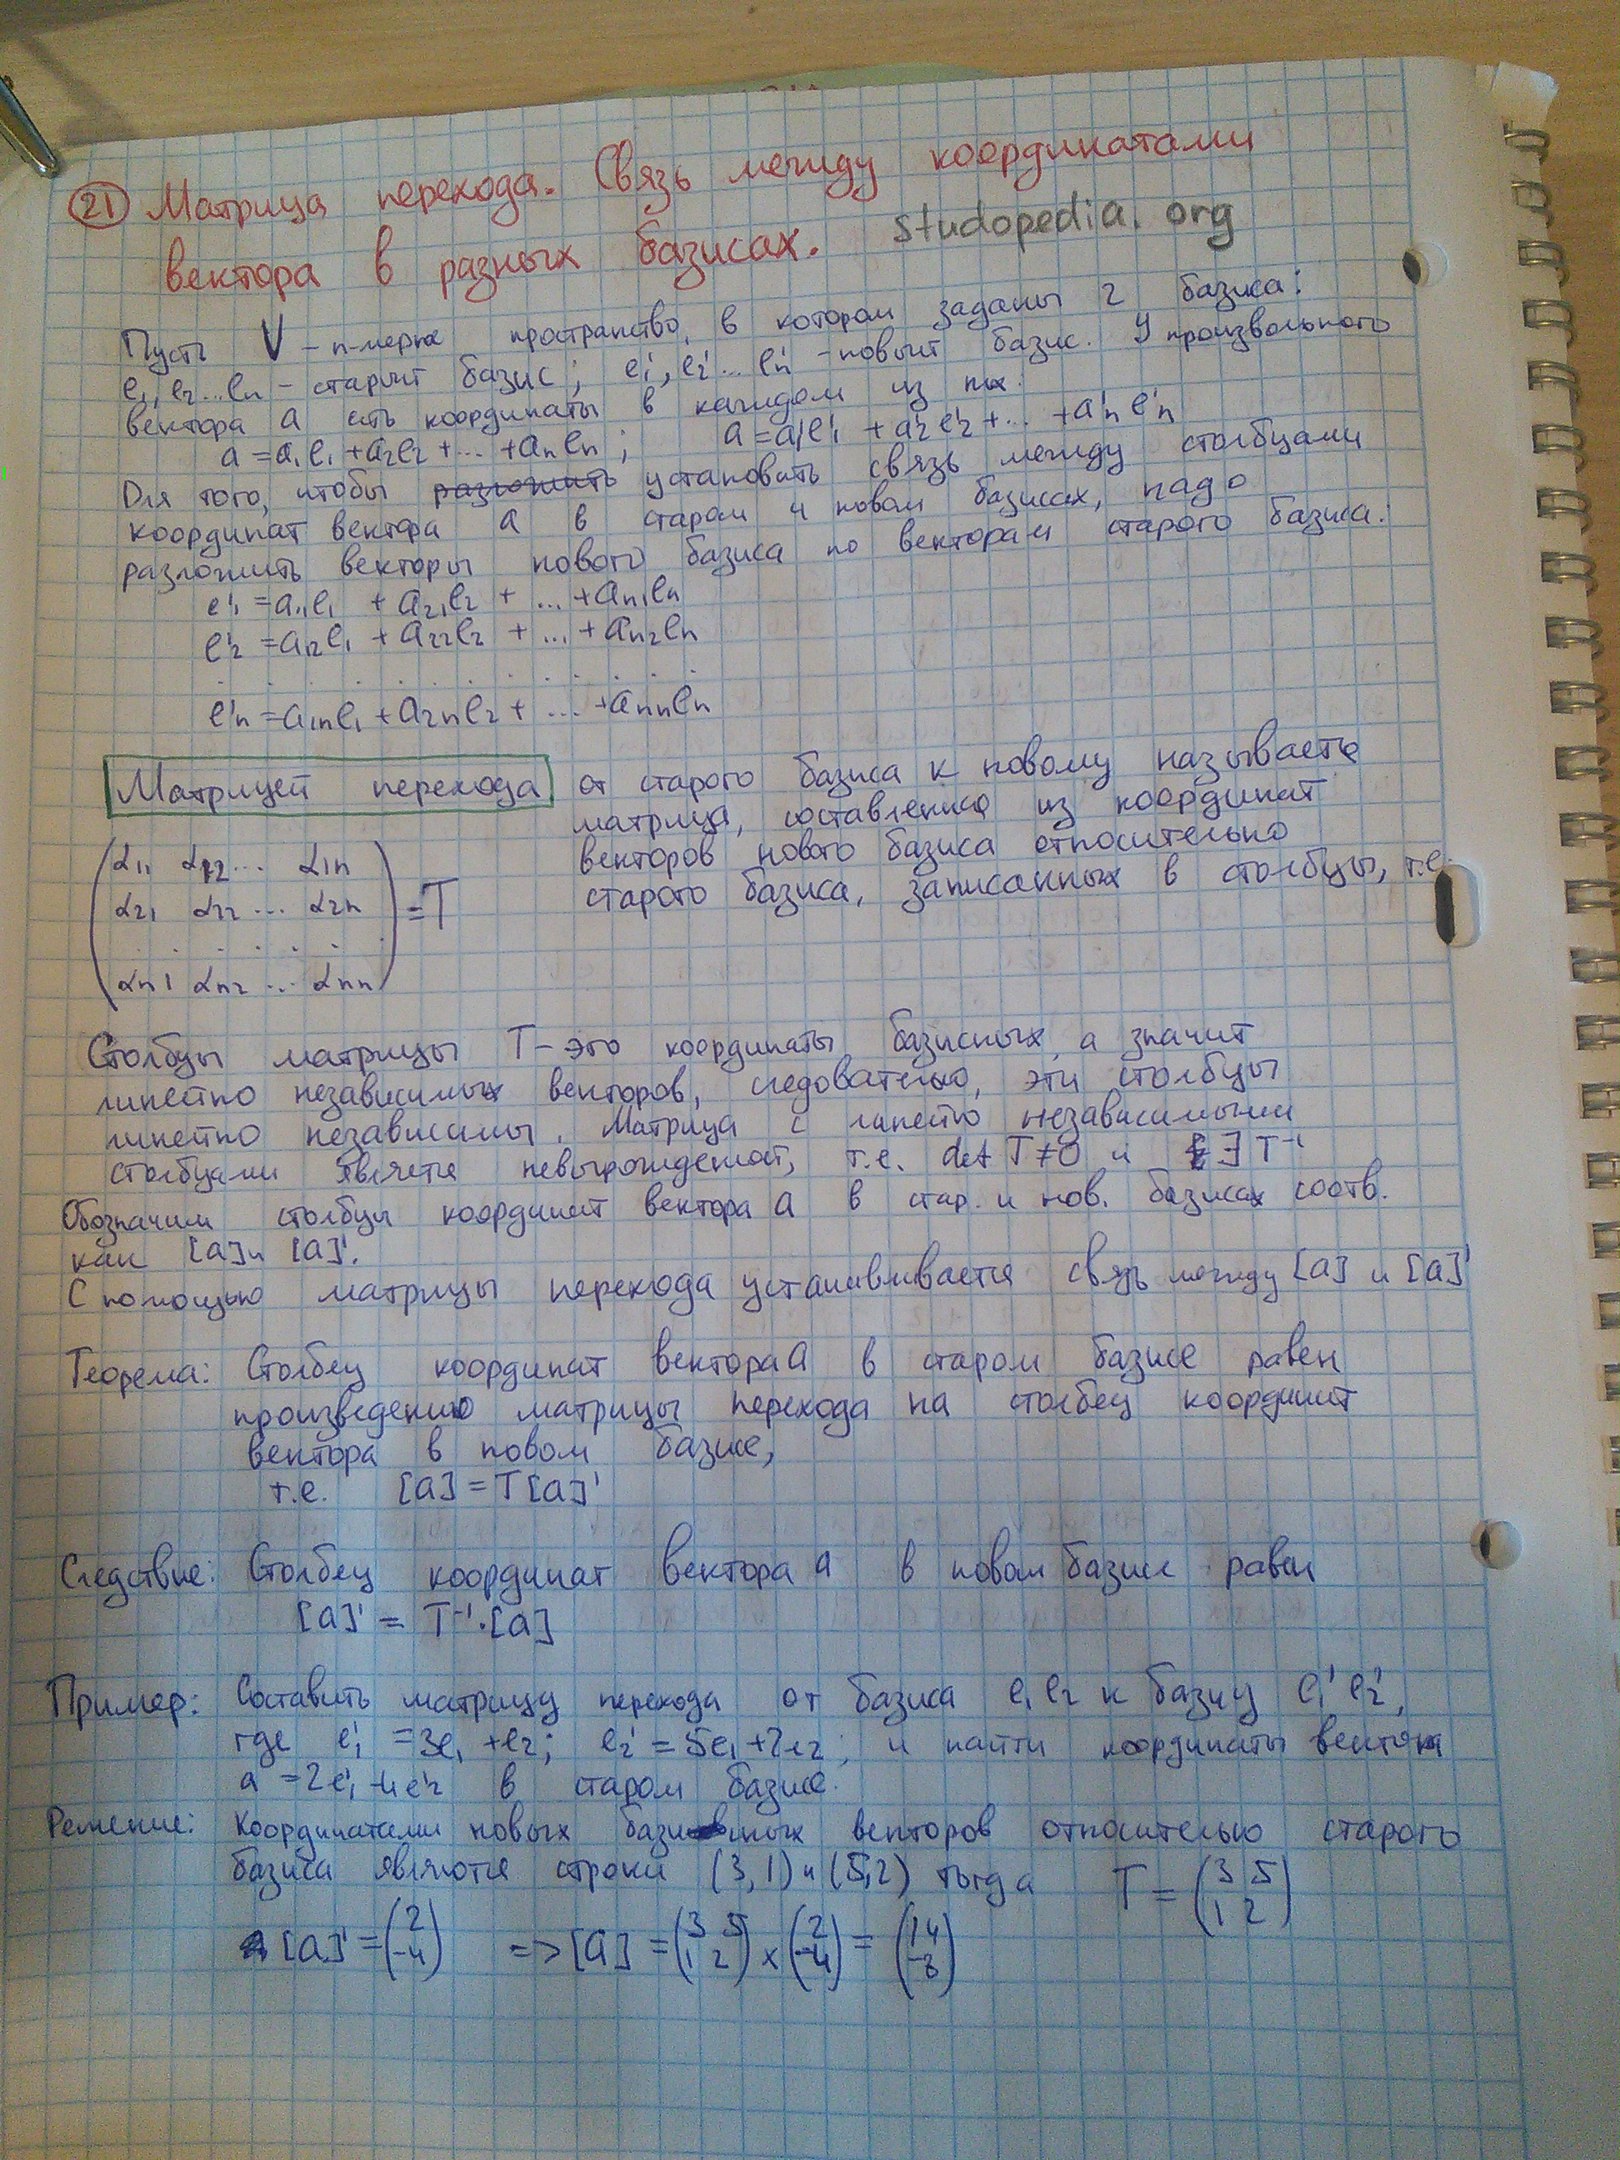 21 Матрица перехода. Связь между координатами
вектора в разных базисах. studopedia.org
Пусть V – n-мерное пространство, в котором заданы 2 базиса:
e₁, e₂ ... eₙ – старый базис; e'₁, e'₂ ... e'ₙ – новый базис. У произвольного
вектора a есть координаты в каждом из них.
a = a₁e₁ + a₂e₂ + ... + aₙeₙ; a = a'₁e'₁ + a'₂e'₂ + ... + a'ₙe'ₙ
Для того, чтобы разложить установить связь между столбцами
координат вектора a в старом и новом базисах, надо
разложить векторы нового базиса по векторам старого базиса:
e'₁ = a₁₁e₁ + a₂₁e₂ + ... + aₙ₁eₙ
e'₂ = a₁₂e₁ + a₂₂e₂ + ... + aₙ₂eₙ
. . . . . . . . . . . .
e'ₙ = a₁ₙe₁ + a₂ₙe₂ + ... + aₙₙeₙ
Матрицей перехода от старого базиса к новому называется
матрица, составленная из координат
векторов нового базиса относительно
старого базиса, записанных в столбцы, т.е.
α₁₁ α₁₂ ... α₁ₙ
α₂₁ α₂₂ ... α₂ₙ = T
. . . . . .
αₙ₁ αₙ₂ ... αₙₙ
Столбцы матрицы T – это координаты базисных, а значит
линейно независимых векторов, следовательно, эти столбцы
линейно независимы. Матрица с линейно независимыми
столбцами является невырожденной, т.е. det T ≠ 0 и ∃ T⁻¹
Обозначим столбцы координат вектора a в стар. и нов. базисах соотв.
как [a] и [a]'.
С помощью матрицы перехода устанавливается связь между [a] и [a]'
Теорема: Столбец координат вектора a в старом базисе равен
произведению матрицы перехода на столбец координат
вектора в новом базисе,
т.е. [a] = T[a]'
Следствие: Столбец координат вектора a в новом базисе равен
[a]' = T⁻¹·[a]
Пример: Составить матрицу перехода от базиса e₁ e₂ к базису e₁' e₂',
где e'₁ = 3e₁ + e₂; e₂' = 5e₁ + 2e₂; и найти координаты вектора
a = 2e'₁ - 4e'₂ в старом базисе.
Решение: Координатами новых базисных векторов относительно старого
базиса являются строки (3, 1) и (5, 2) тогда T = (3 5
1 2)
[a]' = (2
-4) => [a] = (3 5
1 2) × (2
-4) = (14
-8)